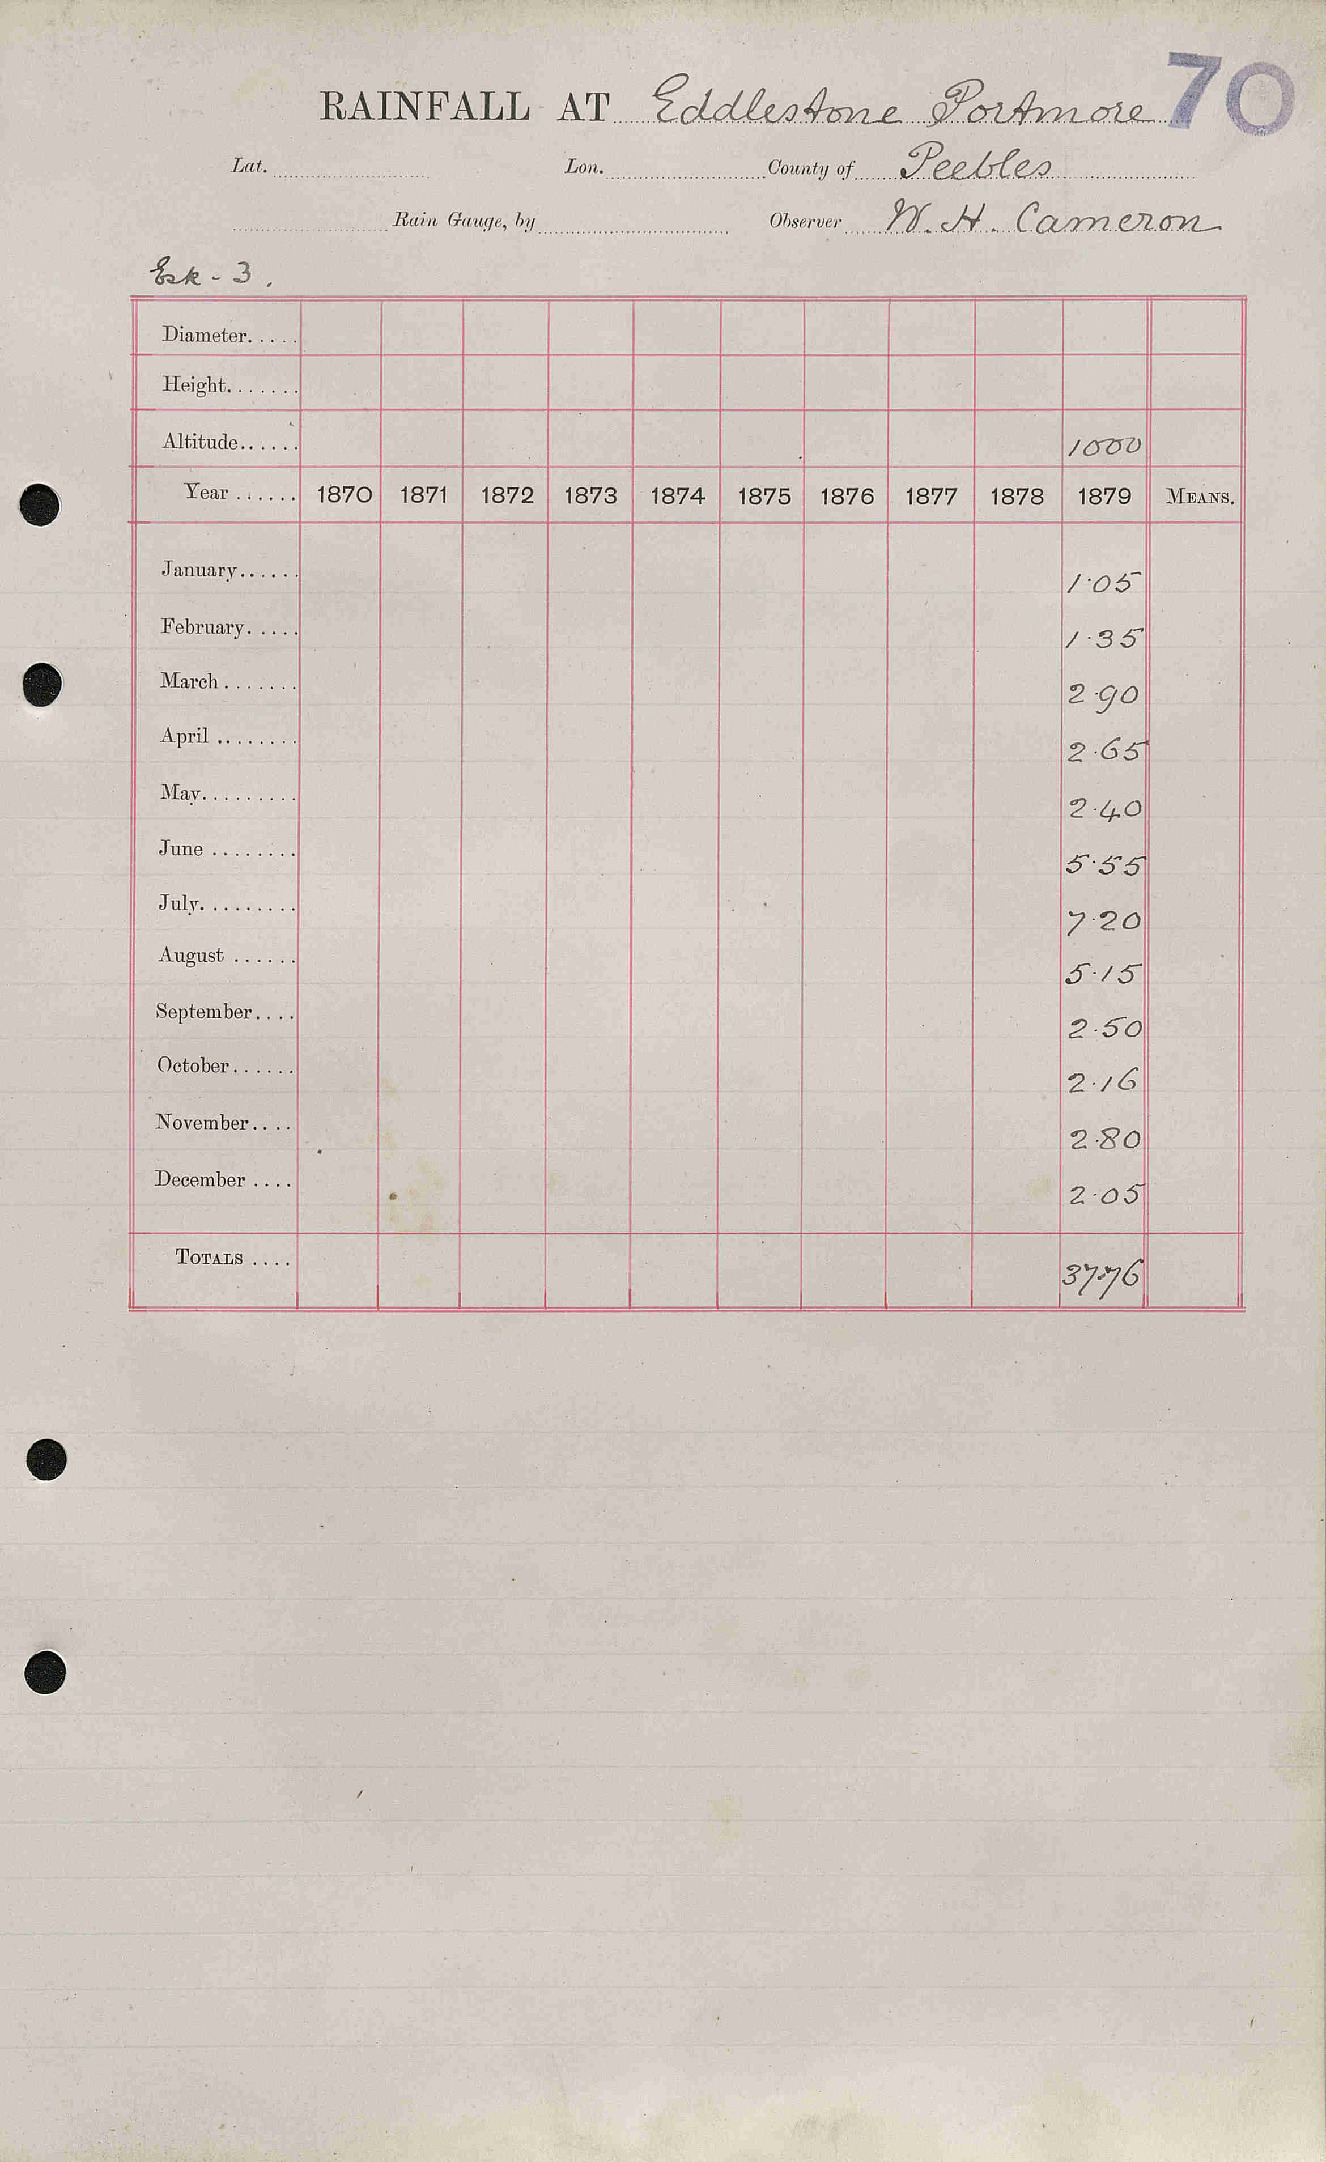 70
RAINFALL AT Eddlestone Portmore
Lat. Lon. County of Peebles
Rain Gauge, by Observer W. H. Cameron
Esk - 3.
Diameter.....
Height.......
Altitude...... 1000
Year ...... 1870 1871 1872 1873 1874 1875 1876 1877 1878 1879 MEANS.
January...... 1·05
February..... 1·35
March ....... 2·90
April ........ 2·65
May......... 2·40
June ........ 5·55
July......... 7·20
August ...... 5·15
September.... 2·50
October...... 2·16
November.... 2·80
December .... 2·05
TOTALS .... 37·76